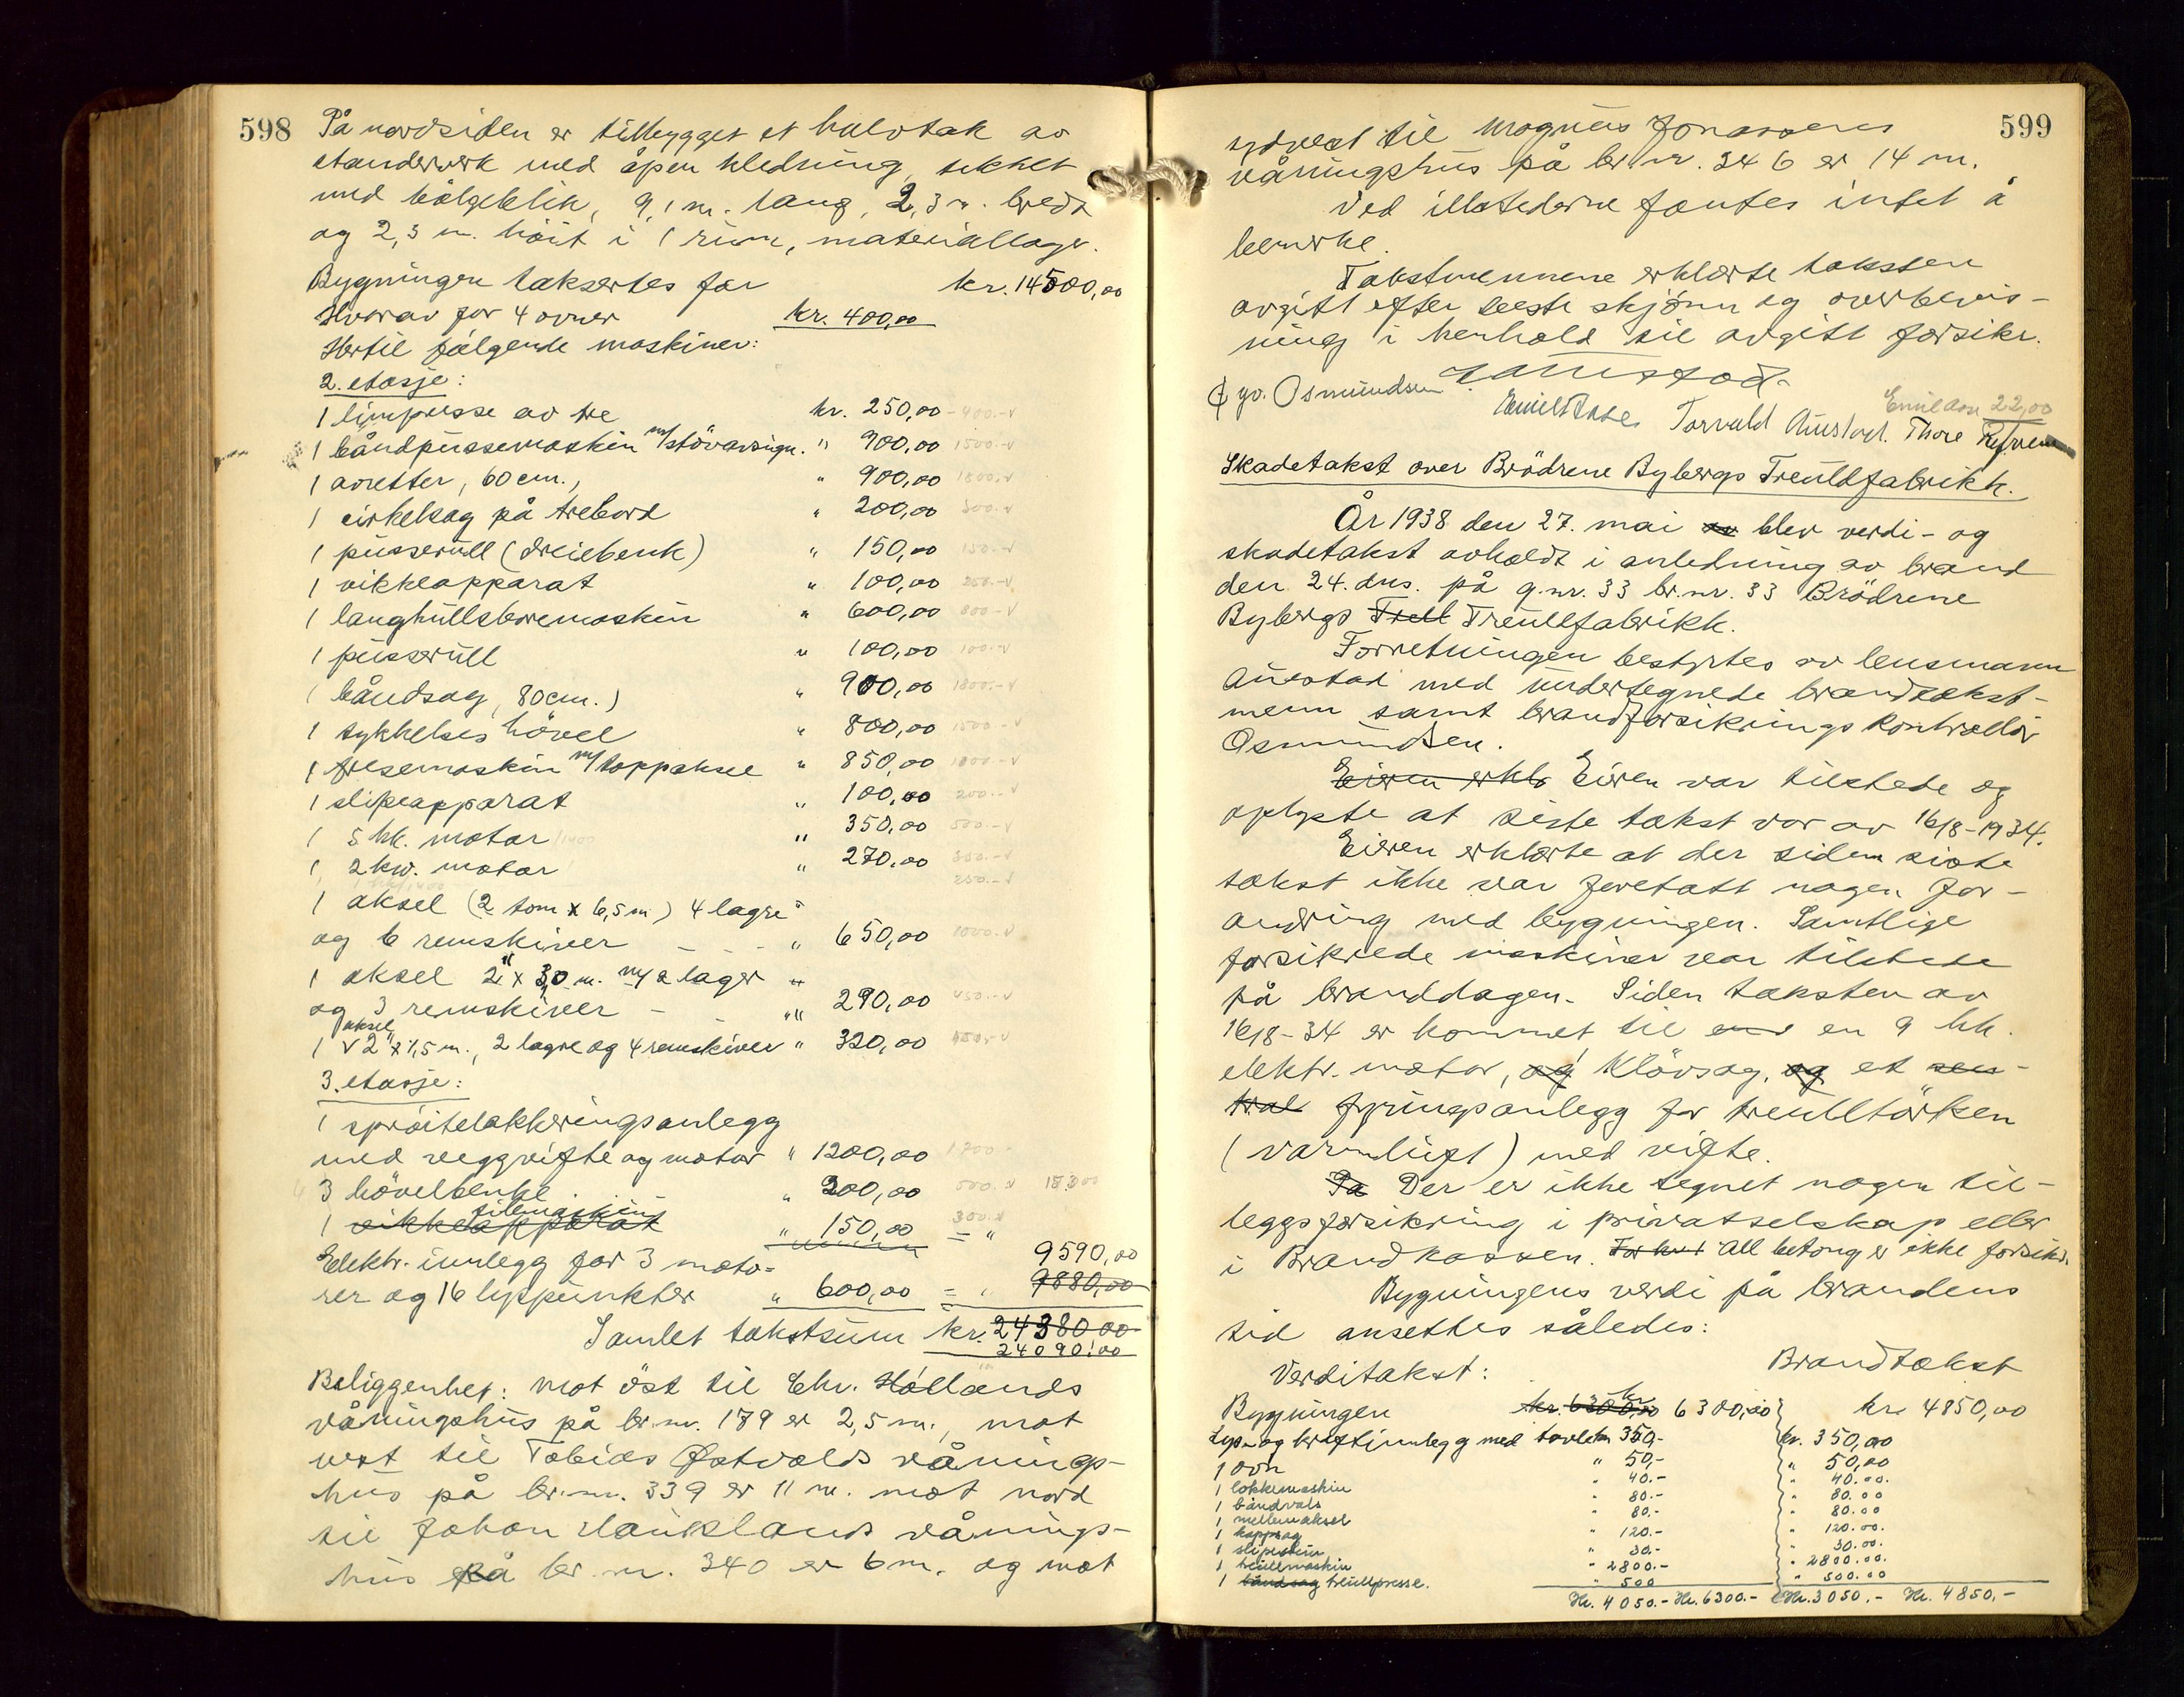 598
På nordsiden er tilbygget et halvtak av
standerverk med åpen kledning, tekket
med bølgeblik, 9,1 m. lang, 2,3 m. bredt
og 2,3 m. höit i 1 rum, materiallager.
Bygningen taksertes for kr. 14500,00
Hvorav for 4 ovner kr. 400,00
Hertil følgende maskiner:
2. etasje:
1 limpresse av tre kr. 250,00 400.-
1 båndpussemaskin m/stövavsugn. " 900,00 1500.-
1 avretter, 60 cm., " 900,00 1800.-
1 cirkelsag på trebord " 200,00 300.-
1 pusserull (dreiebenk) " 150,00 150.-
1 vikkeapparat " 100,00 250.-
1 langhullsboremaskin " 600,00 800.-
1 pusserull " 100,00 100.-
1 båndsag, 80 cm.) " 900,00 1800.-
1 tykkelseshövel " 800,00 1500.-
1 fresemaskin m/toppaksel " 850,00 1000.-
1 slipeapparat " 100,00 200.-
1 5 hk. motor " 350,00 500.-
1 2 kw. motor " 270,00 350.-
250.-
1 aksel (2 tom x 6,5 m) 4 lagre
og 6 remskiver - - - " 650,00 1000.-
1 aksel 2" x 3,0 m. m/2 lager "
og 3 remskiver - - " 290,00 450.-
1 aksel 2" x 1,5 m., 2 lagre og 4 remskiver " 320,00 450.-
3. etasje:
1 spröitelakkeringsanlegg
med veggvifte og motor " 1200,00 1700-
3 hövelbenke " 200,00 500.-
1 vikkeapparat filemaskin " 150,00 300.- = "
Elektr. innlegg for 3 moto- 9590,00
rer og 16 lyspunkter " 600,00 = " 9880,00
Samlet takstsum kr. 24380,00
24090,00
Beliggenhet: mot öst til Chr. Hollands
våningshus på br.nr. 189 er 2,5 m., mot
vest til Tobias Østvolds vånings-
hus på br.nr. 339 er 11 m. mot nord
til Johan Hauklands vånings-
hus på br.nr. 340 er 6 m. og mot
599
sydvest til Magnus Jonassens
våningshus på br.nr. 346 er 14 m.
Ved ildstederne fantes intet å
bemerke.
Takstmennene erklærte taksten
avgitt efter beste skjönn og overbevis-
ning i henhold til avgitt forsikr.
Austad.
Gg. Osmundsen Emil Aase Torvald Austad. Thore
Emil Aase 22,00
Skadetakst over Brödrene Bybergs Treuldfabrikk.
År 1938 den 27. mai blev verdi- og
skadetakst avholdt i anledning av brand
den 24. dns. på g.nr. 33 br.nr. 33 Brödrene
Bybergs Trell Treullfabrikk.
Forretningen bestyrtes av lensmann
Austad med undertegnede brandtakst-
menn samt brandforsikringskontrollör
Osmundsen.
Eieren erkl. Eieren var tilstede og
oplyste at siste takst var av 16/8-1934.
Eieren erklærte at der siden siste
takst ikke var foretatt nogen for-
andring med bygningen. Samtlige
forsikrede maskiner var tilstede
på branddagen. Siden taksten av
16/8-34 er kommet til en 9 hk.
elektr. motor, og klövsag, og et sen-
tral fyringsanlegg for treulltörken
(varmluft) med vifte.
På Der er ikke tegnet nogen til-
leggsforsikring i privatselskap eller
i Brandkassen. All betong er ikke forsikr.
Bygningens verdi på brandens
tid ansettes således:
Verditakst: Brandtakst
Bygningen kr. 6300,00 kr. 6300,00 kr. 4850,00
Lys- og kraftinnlegg med tavle kr. 350,- kr. 350,00
1 ovn " 50,- " 50,00
1 lokkemaskin " 40.- " 40.00.
1 båndvals " 80.- " 80.00
1 mellemaksel " 80.- " 80.00
1 kappsag " 120.- " 120.00.
1 slipestein " 30.- " 30.00.
1 treullmaskin " 2800.- " 2800.00.
1 båndsag treullpresse. " 500 " 500.00
Kr. 4050.- Kr. 6300.- Kr. 3050.- Kr. 4850,-